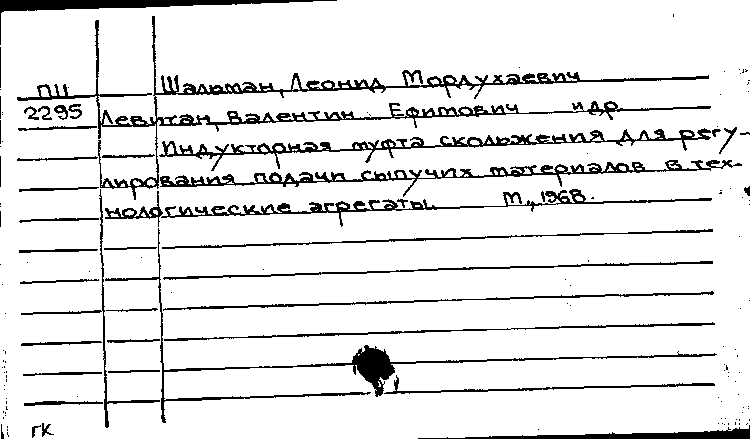 Шальман, Леонид Мордухаевич
ПЦ
2295 Левитан, Валентин Ефимович и др.
Индукторная муфта скольжения для регу-
лирования подачи сыпучих материалов в тех-
нологические агрегаты. М., 1968.
ГК